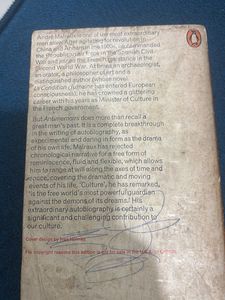 André Malraux is one of the most extraordinary
men alive. After agitating for revolution in
China and Annam in the 1920s, he commanded
the Republican air force in the Spanish Civil
War and joined the French resistance in the
Second World War. At times an archaeologist,
an orator, a philosopher of art and a
distinguished author (whose novel
La Condition humaine has entered European
consciousness), he has crowned a glittering
career with his years as Minister of Culture in
the French government.
But Antimémoires does more than recall a
great man's past. It is a complete breakthrough
in the writing of autobiography, as
experimental and daring in form as the drama
of his own life. Malraux has rejected
chronological narrative for a free form of
reminiscence, fluid and flexible, which allows
him to range at will along the axes of time and
space, covering the dramatic and moving
events of his life. 'Culture', he has remarked,
'is the free world's most powerful guardian
against the demons of its dreams.' His
extraordinary autobiography is certainly a
significant and challenging contribution to
our culture.
Cover design by
For copyright reasons this edition is not for sale in the U.S.A. or Canada